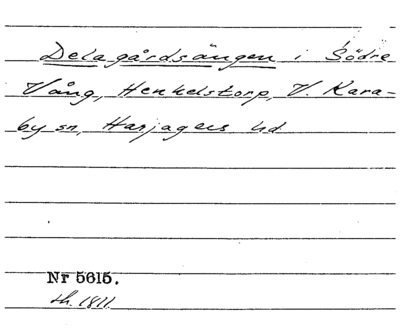 Delagårdsängen i Södre
Vång, Henkelstorp, V. Kara-
by sn, Harjagers hd
Nr 5615.
sk. 1811.